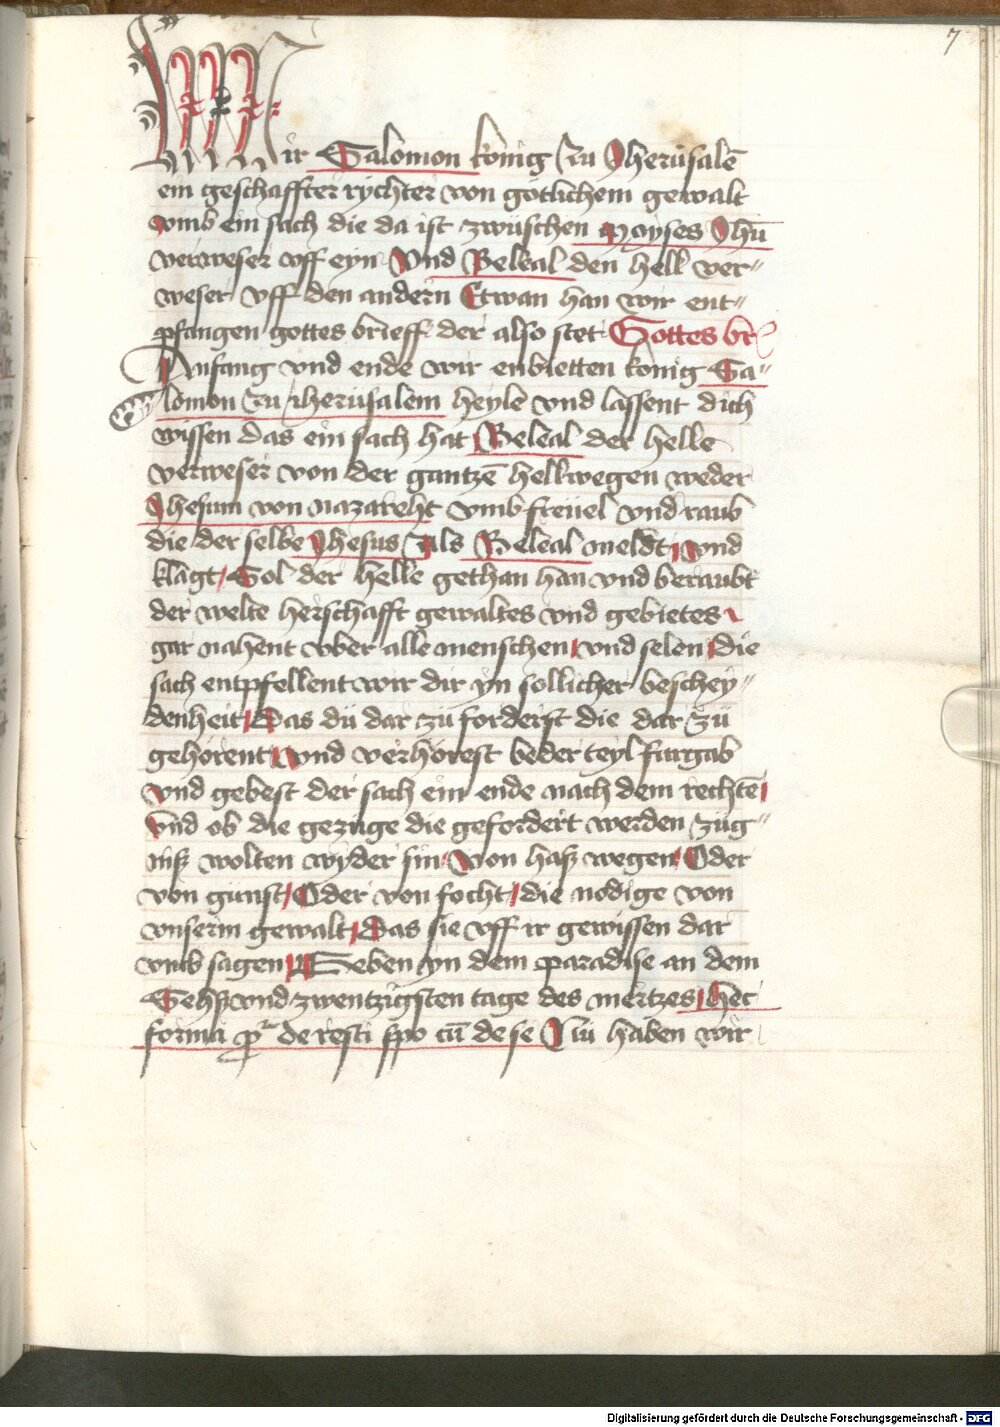 7
Wir Salomon konig zu Jherusalē
ein geschaffter rychter von gotlichem gewalt
vmb ein sach die da ist zwüschen Moyses Jhū
verweser vff eyn Vnd Beleal den hell ver〃
weser vff den andern Etwan han wir ent〃
pfangen gottes brieff der also stet Gottes br
Anfang vnd ende wir enbietten konig Sa〃
lomon zu iherusalem heyle vnd lassent dich
wissen das ein sach hat Beleal der helle
verweser von der gantzē hellwegen weder
Jhesum von nazareht vmb freüel vnd raub
die der selbe Jhesus Als Beleal meldt vnd
klagt Sol der helle gethan han vnd beraubt
der welte herschafft gewaltes vnd gebietes
gar nahent vber alle menschen vnd selen die
sach entpfellent wir dir yn sollicher beschey〃
denheit Das dü dar zü forderst die dar zü
gehorent vnd verhorest beder teyl furgab
vnd gebest der sach ein ende nach dem rechtē
vnd ob die gezuge die gefordert werden züg〃
niß wolten wyder sin Von haß wegen Oder
von gunst Oder von focht die nodige von
vnserm gewalt Das sie vff ir gewissen dar
vmb sagen Geben yn dem paradise an dem
Sehß vnd zwentzigsten tage des mertzes Hec
forma de resti spo cū de se Nu haben wir
Digitalisierung gefördert durch die Deutsche Forschungsgemeinschaft - DFG